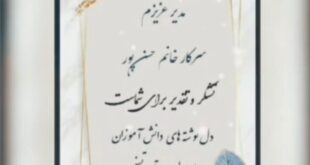 مدیر عزیزم
سرکار خانم حسن پور
تشکر و تقدیر برای شماست
دل نوشته های دانش آموزان